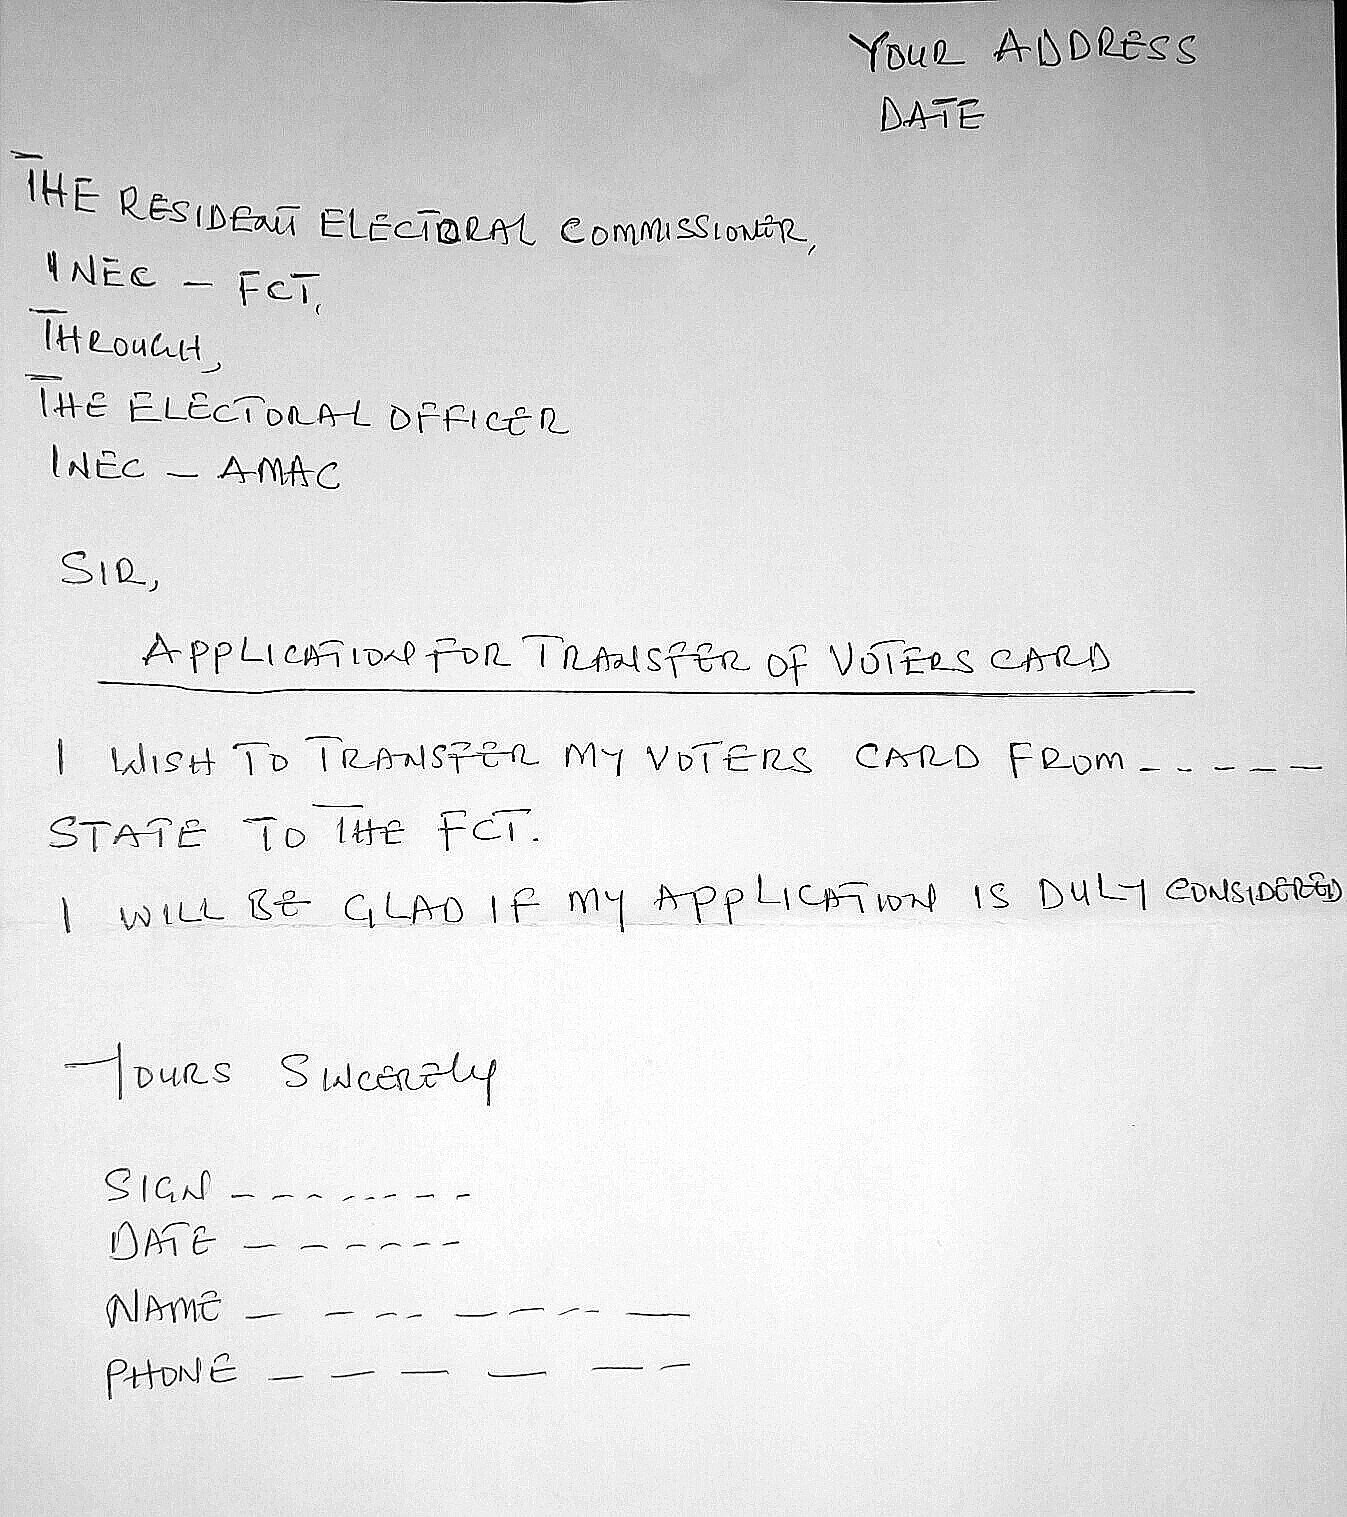 YOUR ADDRESS
DATE
THE RESIDENT ELECTORAL COMMISSIONER,
INEC - FCT,
THROUGH,
THE ELECTORAL OFFICER
INEC - AMAC
SIR,
APPLICATION FOR TRANSFER OF VOTERS CARD
I WISH TO TRANSFER MY VOTERS CARD FROM - - - - -
STATE TO THE FCT.
I WILL BE GLAD IF MY APPLICATION IS DULY CONSIDERED
YOURS SINCERELY
SIGN - - - - - - - -
DATE - - - - - - -
NAME - - - - - - - - -
PHONE - - - - - -